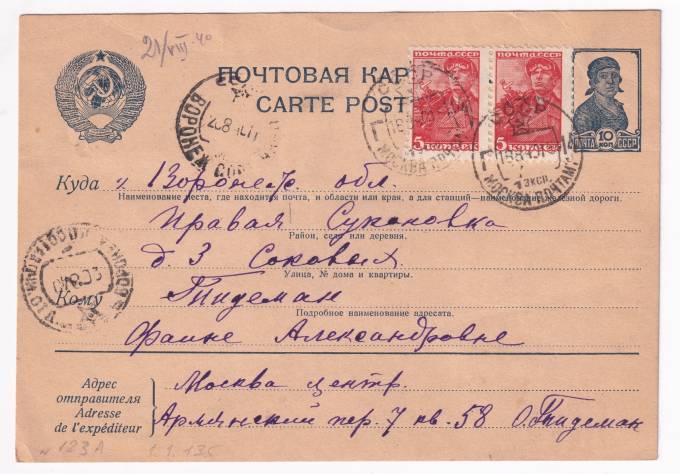 21/VIII 40
ПОЧТОВАЯ КАР
CARTE POST
ПОЧТА СССР
5 КОПЕЕК
ПОЧТА СССР
5 КОПЕЕК
10 КОП.
ПОЧТА СССР
ВОРОНЕЖ
СССР
МОСКВА
СССР
МОСКВА ПОЧТАМТ
ЭКСП.
Куда г. Воронеж обл.
Наименование места, где находится почта, и области или края, а для станций—наименование железной дороги.
Правая Сукановка
Район, село или деревня.
д. 3 Соковых
Улица, № дома и квартиры.
Кому Тидеман
Подробное наименование адресата.
Фаине Александровне
Адрес отправителя
Adresse de l'expéditeur
Москва центр.
Армянский пер. 7 кв. 58 О. Тидеман
N 123 A 1.1.135